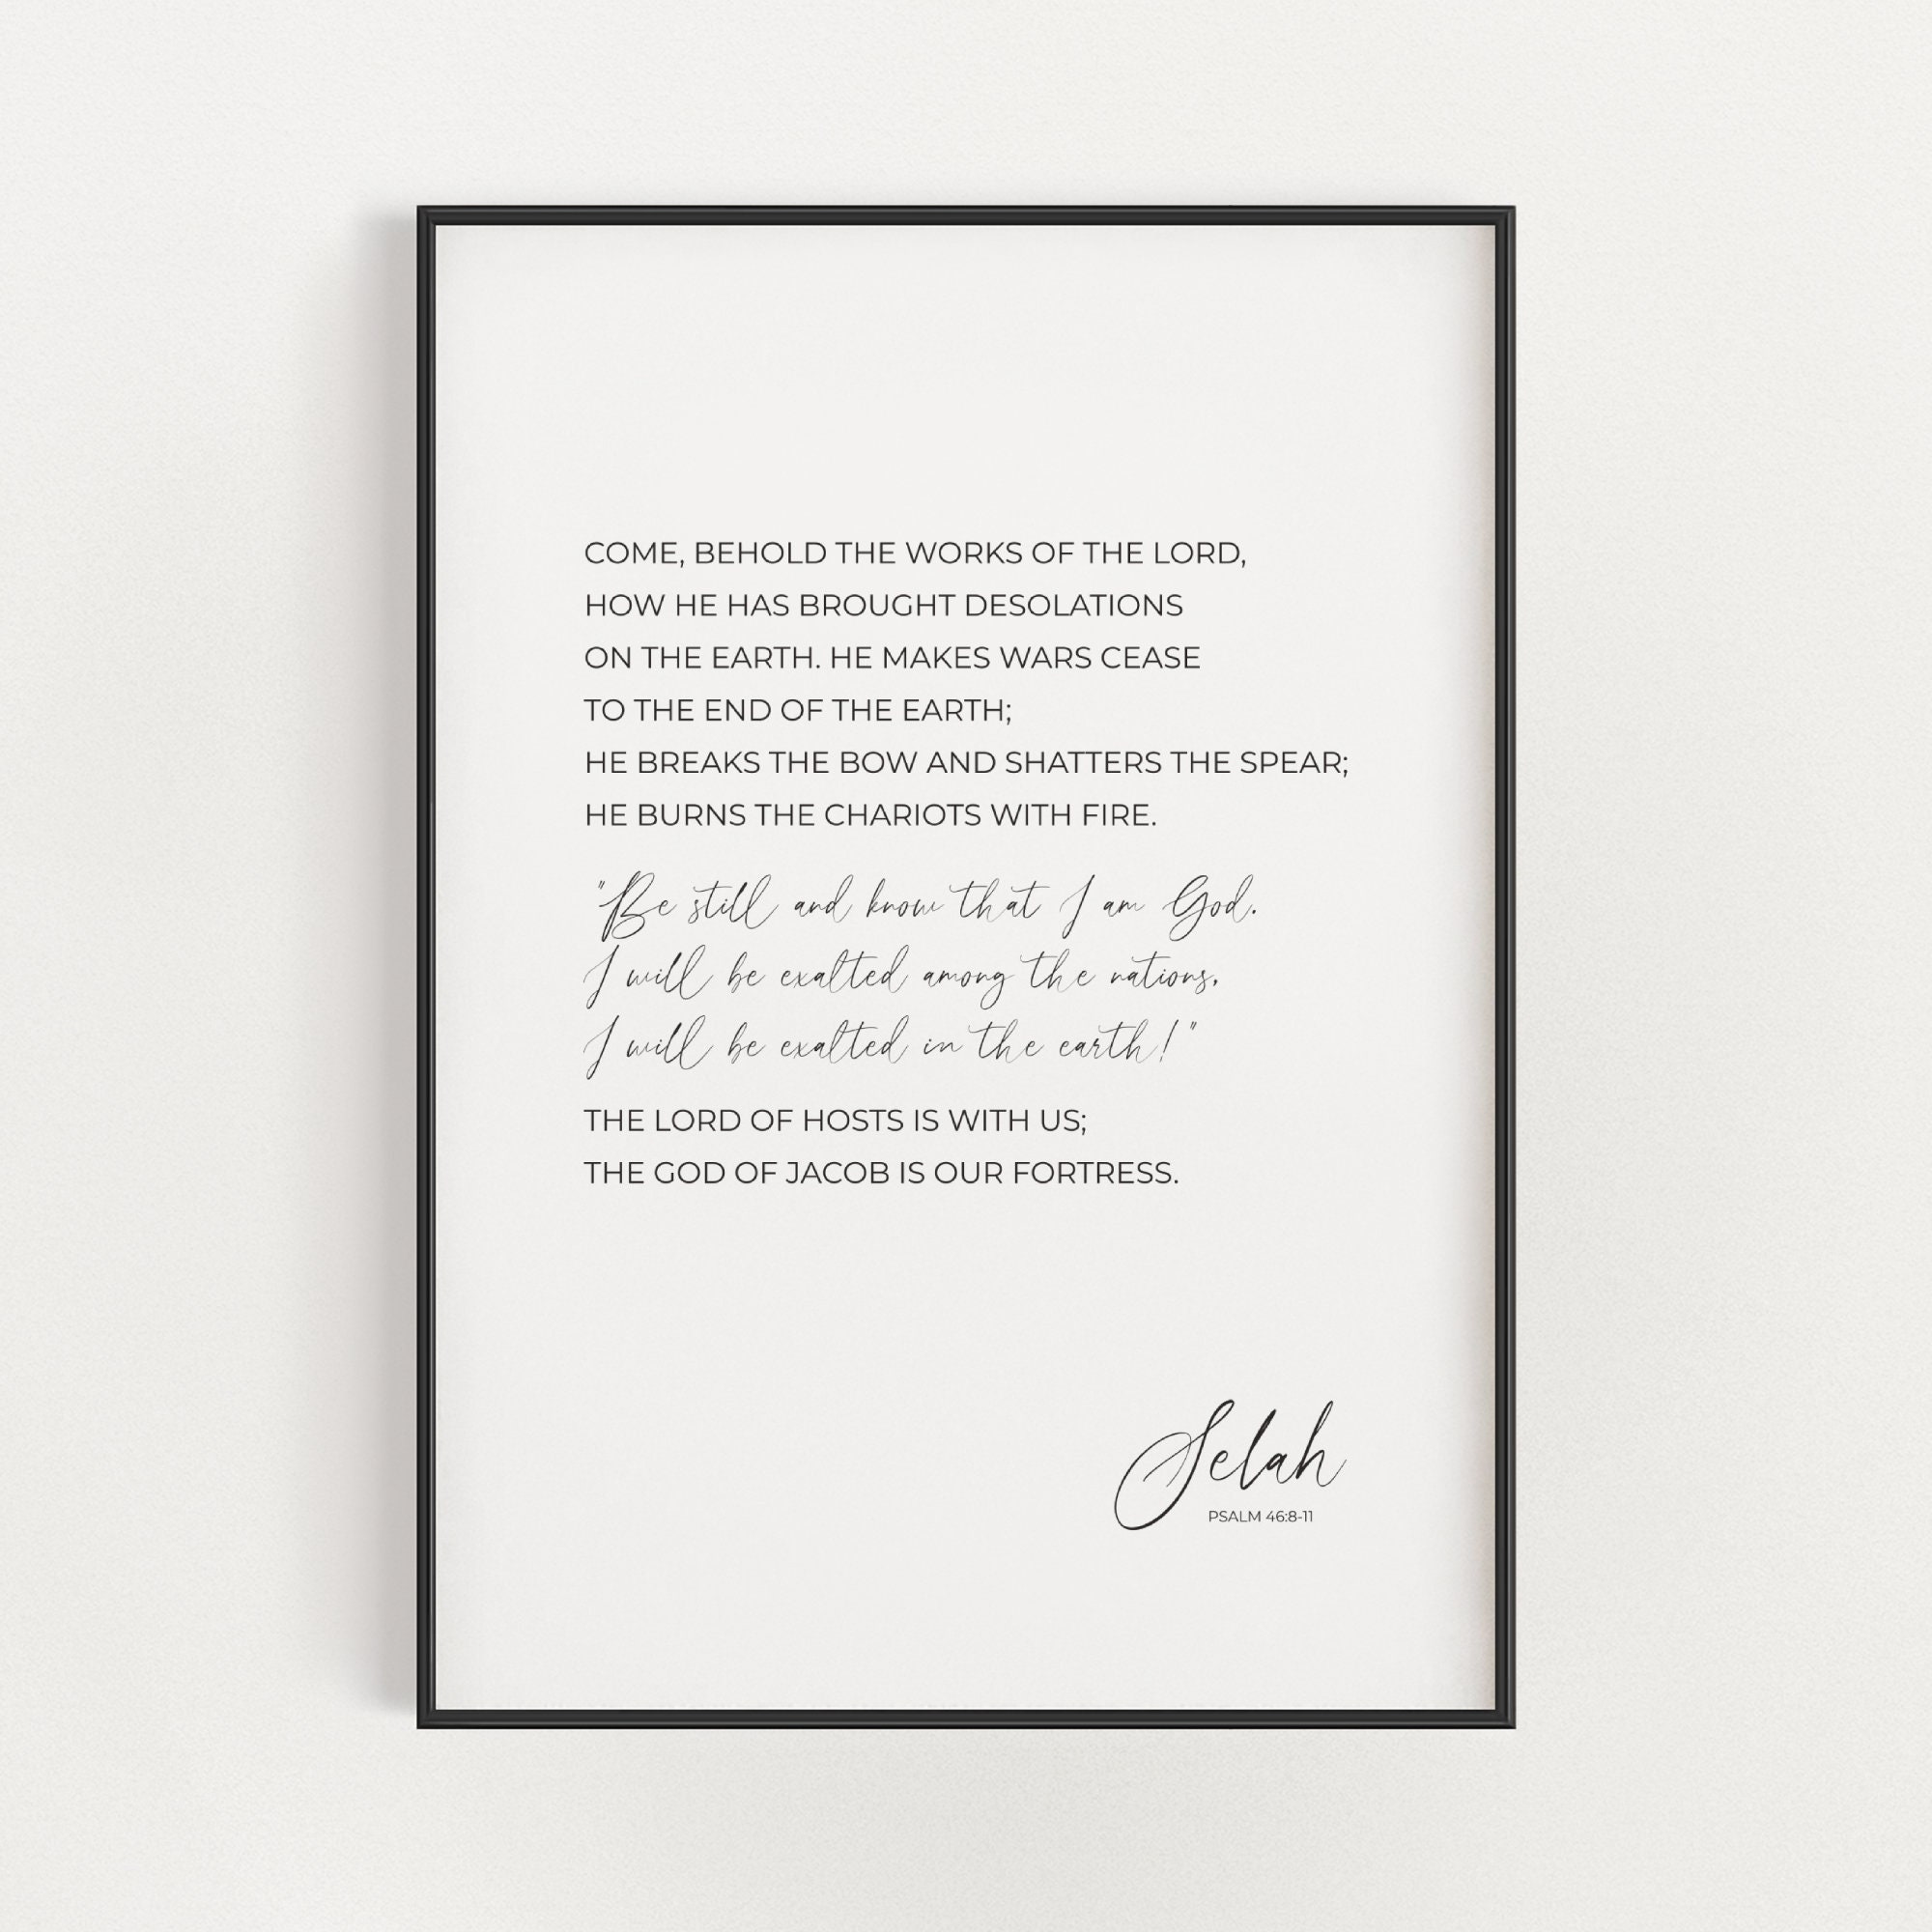 COME, BEHOLD THE WORKS OF THE LORD,
HOW HE HAS BROUGHT DESOLATIONS
ON THE EARTH. HE MAKES WARS CEASE
TO THE END OF THE EARTH;
HE BREAKS THE BOW AND SHATTERS THE SPEAR;
HE BURNS THE CHARIOTS WITH FIRE.
"Be still and know that I am God.
I will be exalted among the nations,
I will be exalted in the earth!"
THE LORD OF HOSTS IS WITH US;
THE GOD OF JACOB IS OUR FORTRESS.
Selah
PSALM 46:8-11